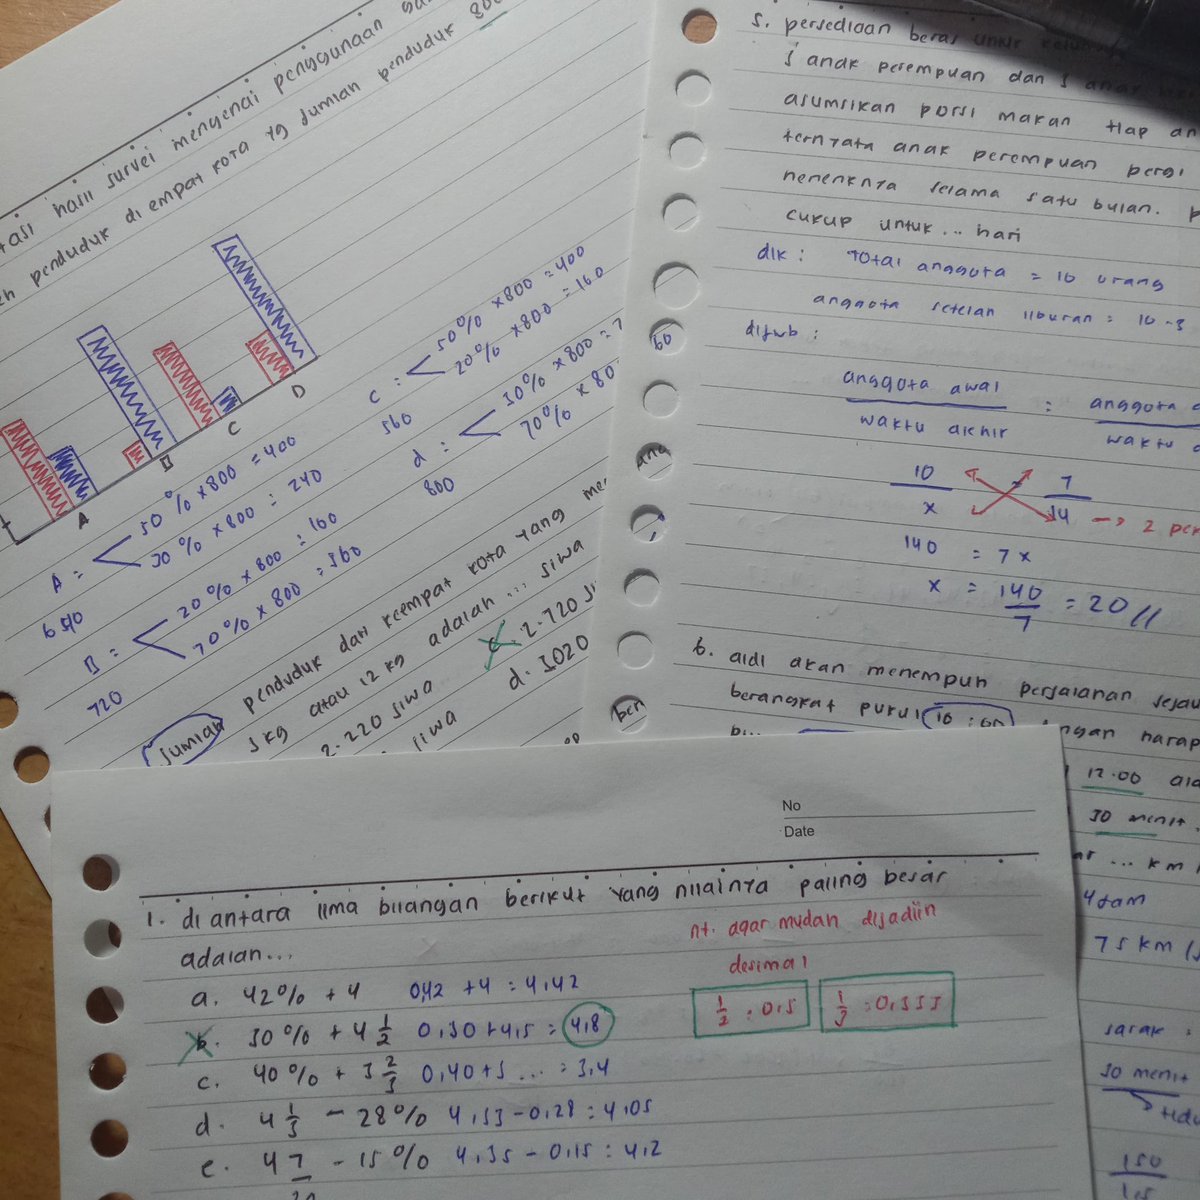 tasi hasil survei mengenai penggunaan
penduduk di empat kota yg jumlah penduduk 800
A
B
C
D
A : 50% x 800 = 400
30% x 800 = 240
640
B = 20% x 800 = 160
70% x 800 = 560
720
C : 50% x 800 = 400
20% x 800 = 160
560
d = 30% x 800 =
70% x 80
800
Jumlah penduduk dari keempat kota yang me
3kg atau 12 kg adalah ... siwa
2.220 siwa
c. 2.720 ji
jiwa
d. 3020
5. persediaan beras untuk kelu
5 anak perempuan dan 5 anak
asumsikan porsi makan tiap an
ternyata anak perempuan pergi
neneknya selama satu bulan.
cukup untuk ... hari
dik : Total anggota = 10 orang
anggota setelah liburan = 10 - 3
dijwb :
anggota awal : anggota
waktu akhir waktu
10 7
x 14 → 2 pe
140 = 7x
x = 140 = 20 //
7
60
Ang
ben
6. aldi akan menempuh perjalanan sejau
berangkat pukul 10 : 00 ngan harap
12.00
30 menit
... km
4 jam
75 km /
30 menit
150
No
Date
1. di antara lima bilangan berikut yang nilainya paling besar
adalah...
nt. agar mudah dijadiin
desimal
1/2 : 0,5
1/3 : 0,333
a. 42% + 4 0,42 + 4 = 4,42
b. 30% + 4 1/2 0,30 + 4,5 = 4,8
c. 40% + 3 2/3 0,40 + 3 ... = 3,4
d. 4 1/3 - 28% 4,33 - 0,28 : 4,05
e. 4 7/20 - 15% 4,35 - 0,15 : 4,2